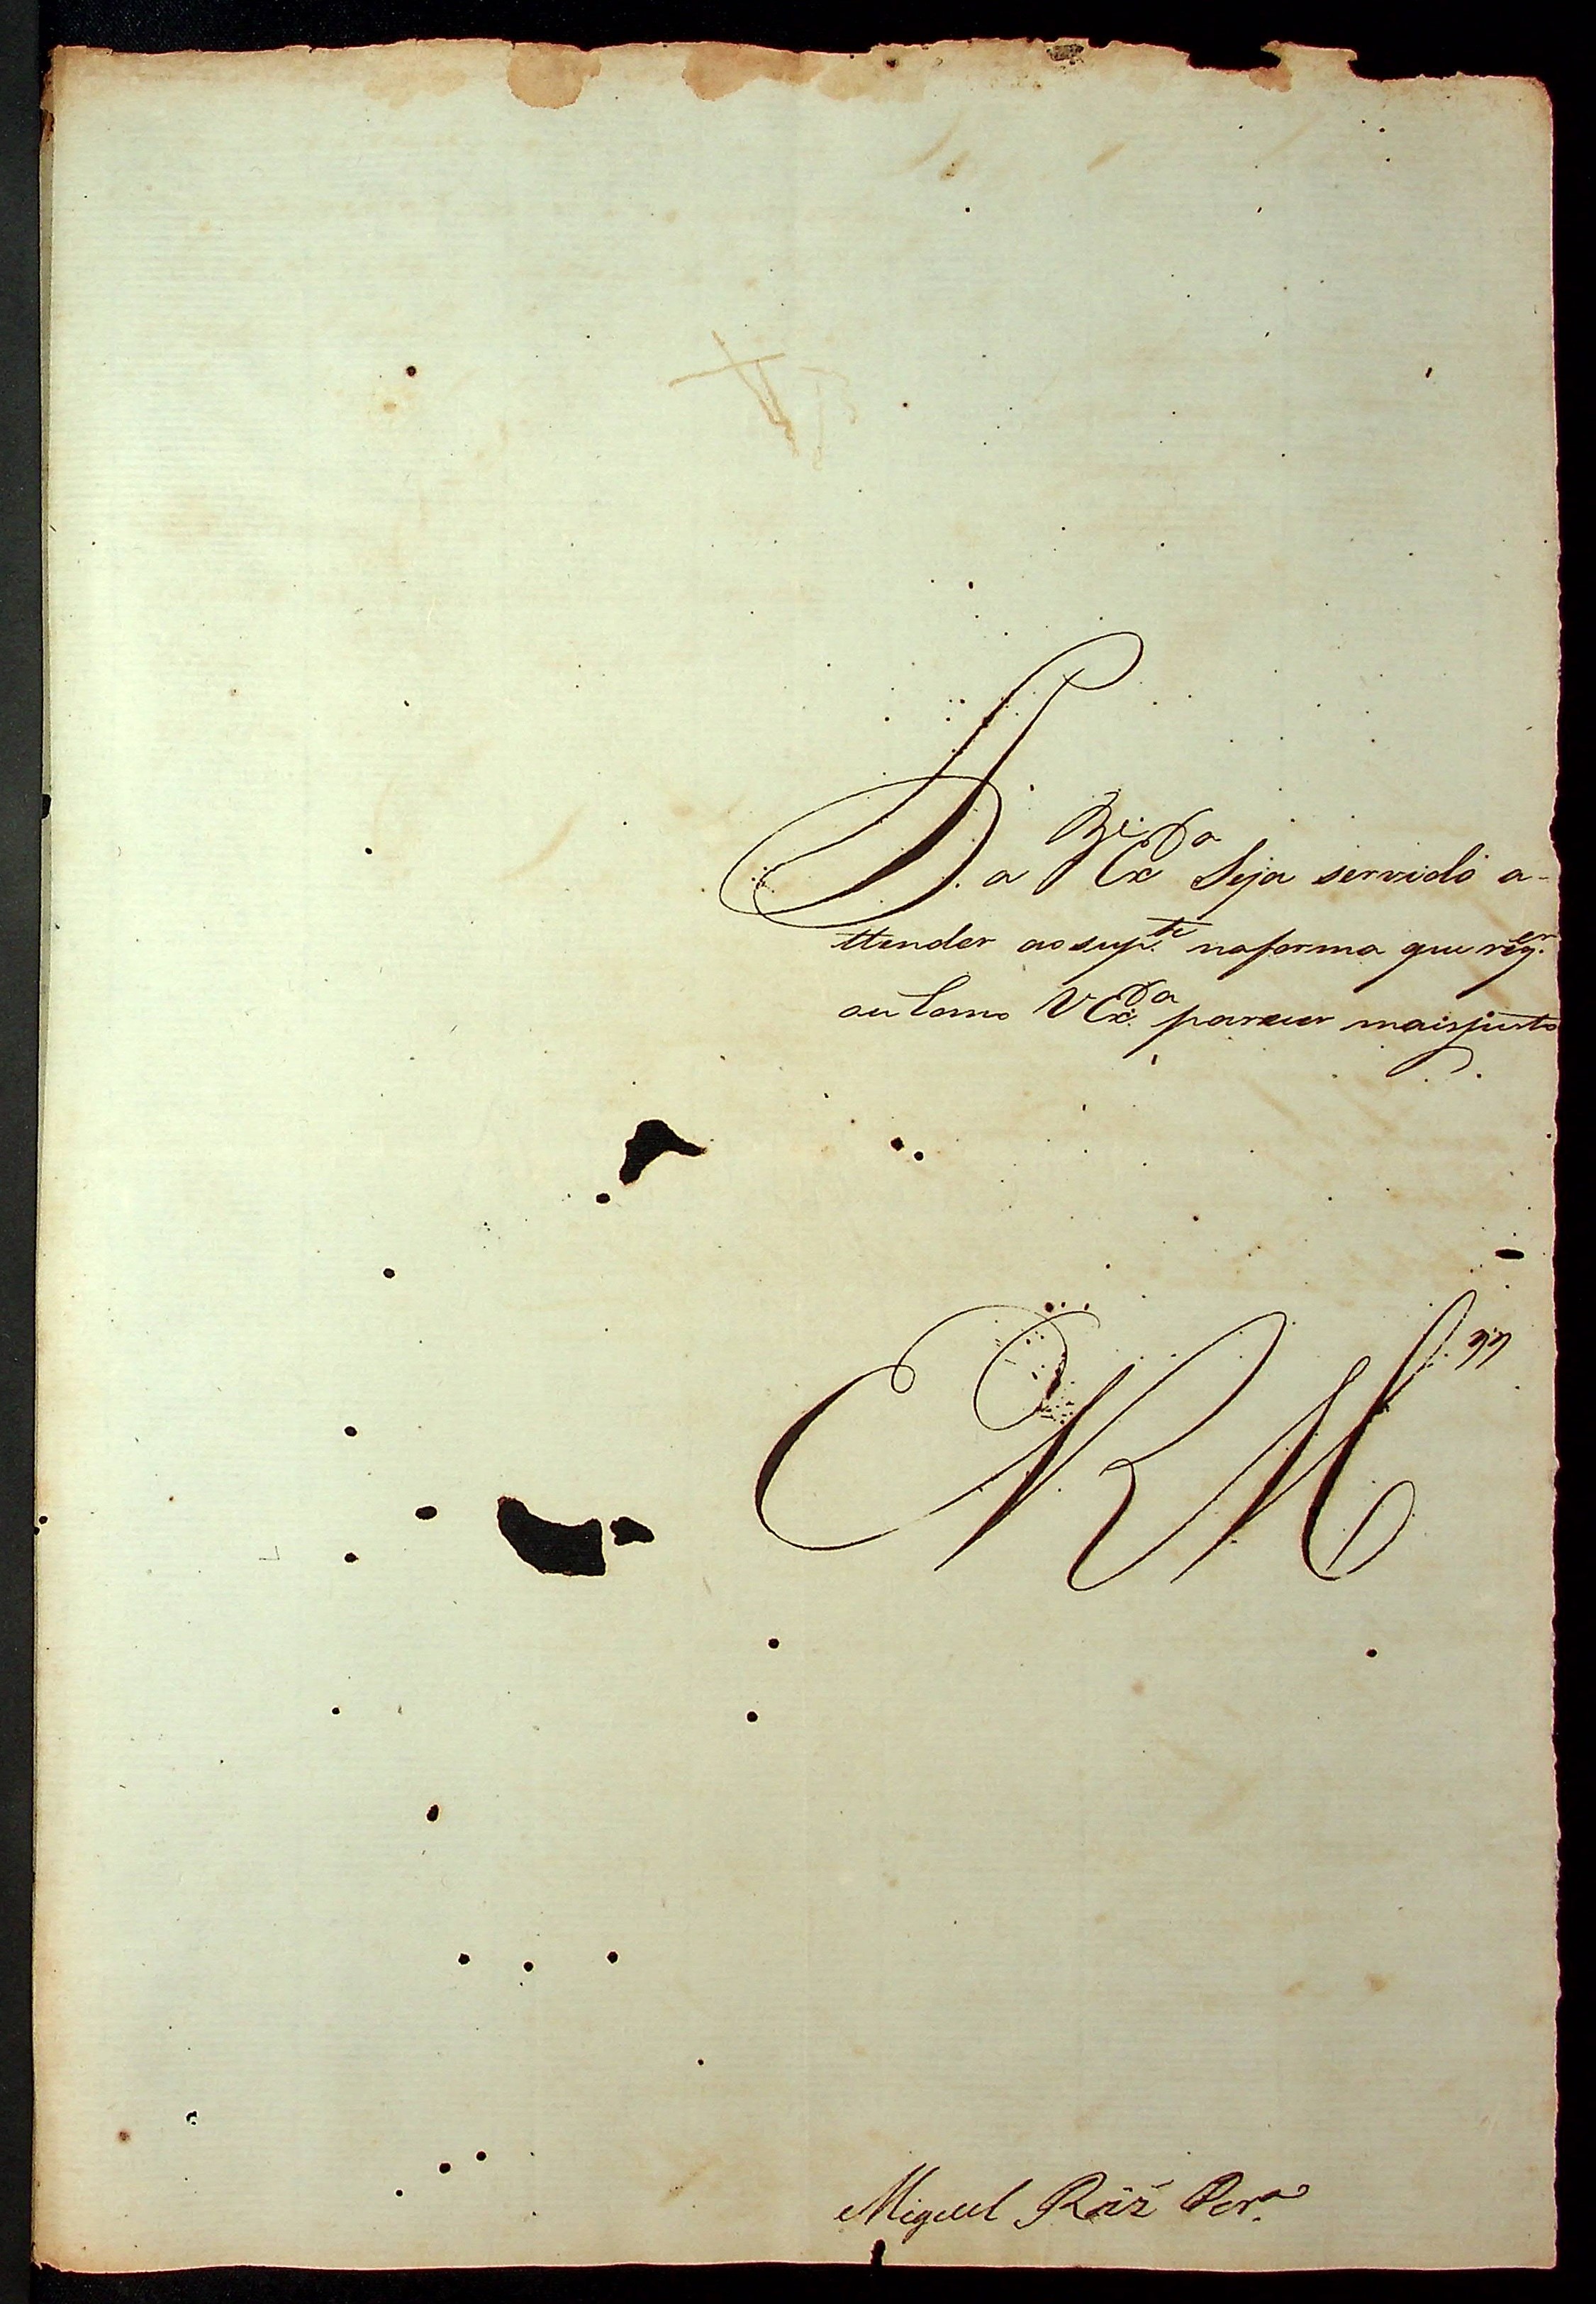 P. a V Ex.ª Seja servido a-
ttender ao sup.te na forma que req.er
ou Como V Ex.ª parecer mais justo
E R M.
Miguel Roiz Per.ª